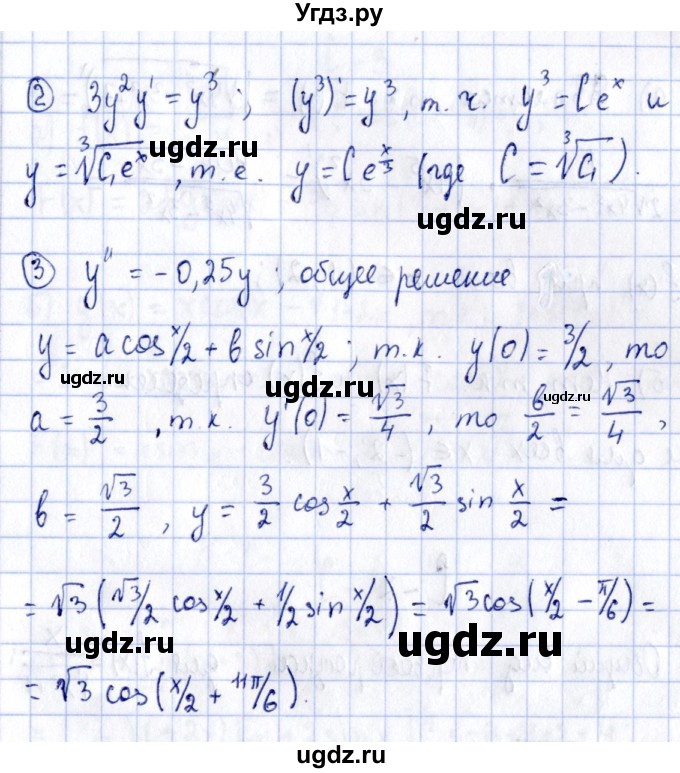 Угдз.ру
② 3y²y' = y³ ; (y³)' = y³, т.ч. y³ = Ceˣ и
y = ∛(C₁eˣ) , т.е. y = Ce^(x/3) (где C = ∛C₁).
ugdz.ru ugdz.ru
ugdz.ru
③ y'' = -0,25y ; общее решение
y = a cos x/2 + b sin x/2 ; т.к. y(0) = 3/2, то
ugdz.ru ugdz.ru
a = 3/2 , т.к. y'(0) = √3/4 , то b/2 = √3/4 ,
ugdz.ru
b = √3/2 , y = 3/2 cos x/2 + √3/2 sin x/2 =
= √3 (√3/2 cos x/2 + 1/2 sin x/2) = √3 cos(x/2 - π/6) =
ugdz.ru ugdz.ru
= √3 cos(x/2 + 11π/6).
ugdz.ru